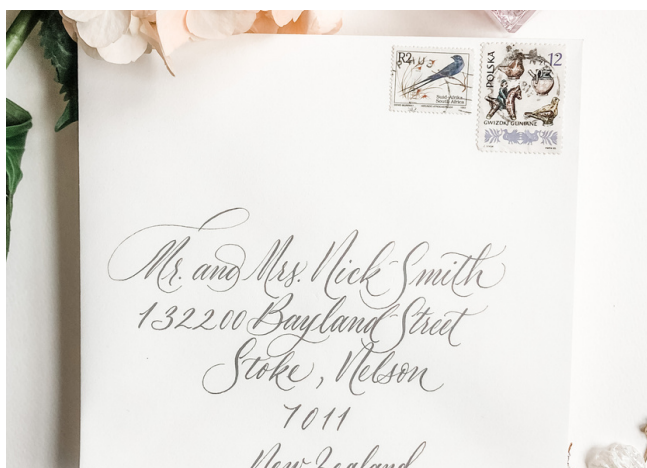 R2
Suid-Afrika
South Africa
POLSKA
12
GWIZDKI GLINIANE
Mr. and Mrs. Nick Smith
132200 Bayland Street
Stoke, Nelson
7011
New Zealand